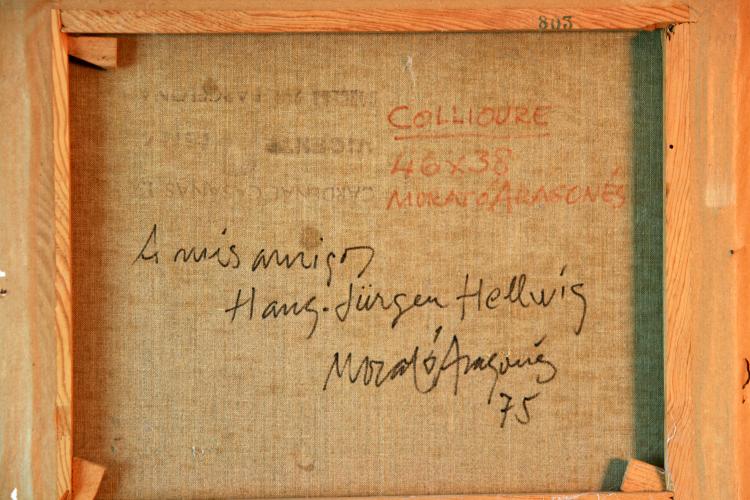 803
COLLIOURE
46x38
MORATÓ ARAGONÉS
A mis amigos
Hans-Jürgen Hellwig
Morató Aragonés
75